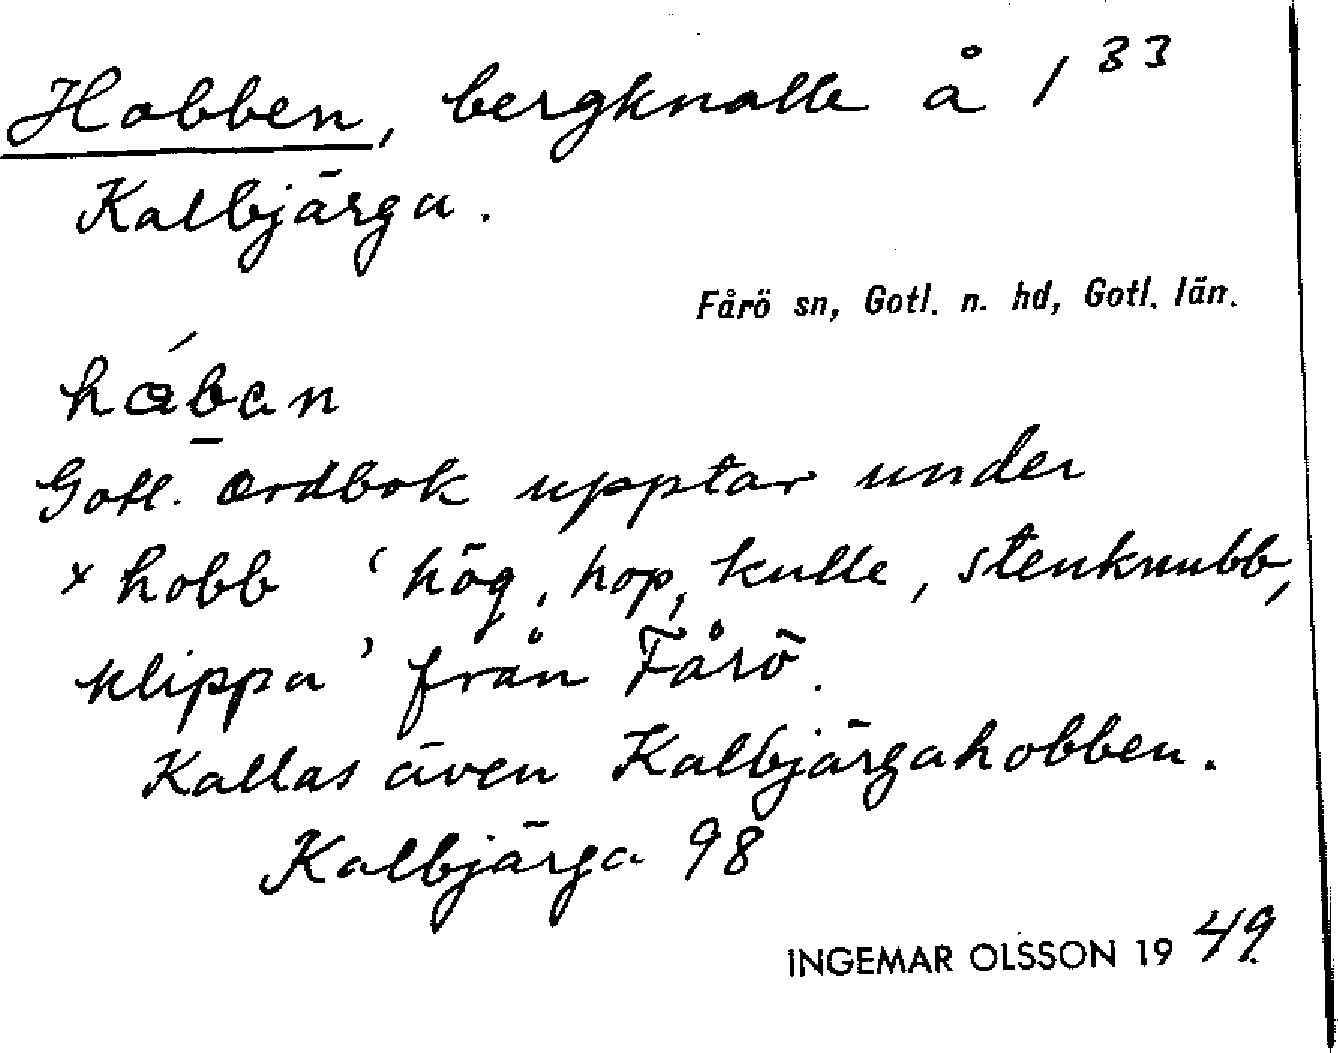 Hobben, bergknalle å 1 33
Kalbjärga.
Fårö sn, Gotl. n. hd, Gotl. län.
hǻb̲an
Gotl. ordbok upptar under
× hobb ‘hög, hop, kulle, stenknubb,
klippa’ från Fårö.
Kallas även Kalbjärgahobben.
Kalbjärga 98
INGEMAR OLSSON 19 49.